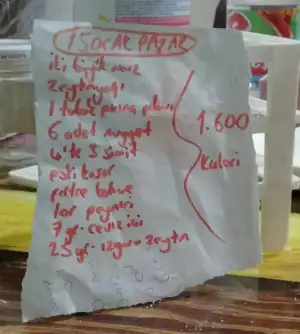 15 OCAK PAZAR
iki büyük muz
zeytinyağı
1 tabak pirinç pilavı
6 adet nugget
4'te 3 simit
peti kaşar
filtre kahve
lor peyniri
7 gr. ceviz içi
25 gr. ızgara zeytin
1.600
kalori